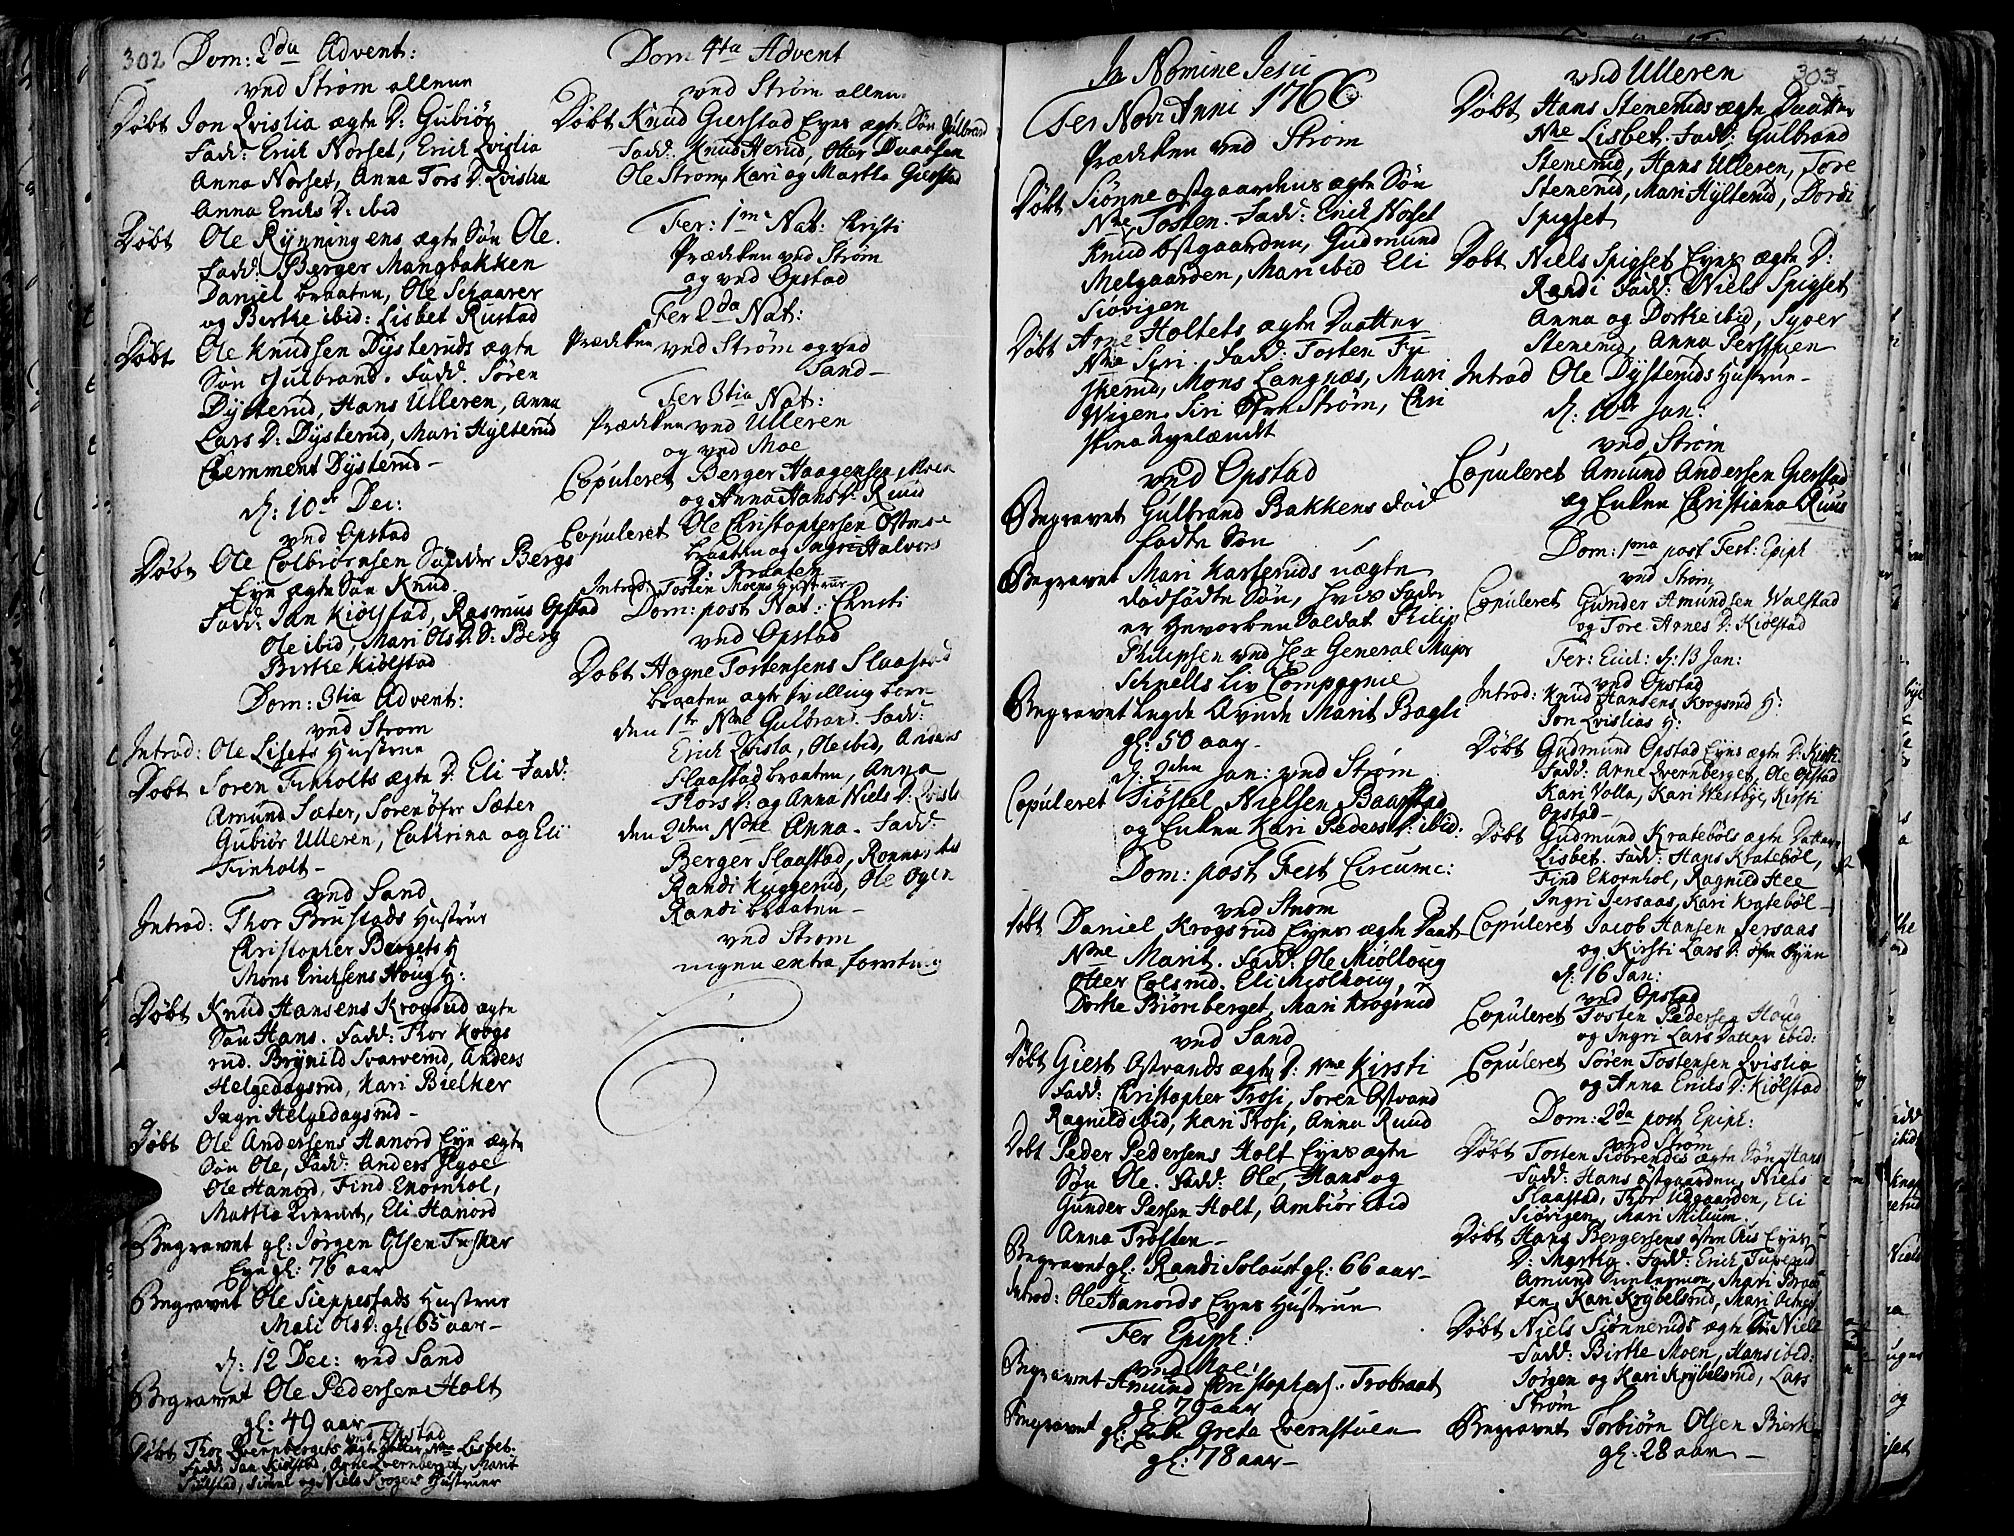 302
Dom: 2da Advent:
ved Strøm allene
Døbt Jon Qvislia ægte D: Gubiør
Fadd: Erich Norset, Erich Qvislia
Anna Norset, Anna Tors D: Qvislia
Anna Erichs D: ibid
Døbt Ole Rynningens ægte Søn Ole.
Fadd: Berger Mangbakken
Daniel braaten, Ole Schaarer
og Birthe ibid: Lisbet Rustad
Døbt Ole Knudsen Dysteruds ægte
Søn Gulbrand. Fadd. Søren
Dysterud, Hans Ulleren, Anna
Lars D: Dysterud, Mari Hylterud
Chernment Dysterud -
d: 10de Dec:
ved Opstad
Døbt Ole Colbiørnsen Bergs
Eye ægte Søn Knud.
Fadd: Jan Kiølstad, Rasmus Opstad
Ole ibid, Mari Ols D: Berg
Birthe Kiølstad
Dom: 3tia Advent:
ved Strøm
Introd: Ole Lisets Hustrue
Døbt Søren Finholts ægte D: Eli Fadd:
Amund Sæter, Søren øfre Sæter
Gubiør Ulleren, Cathrina og Eli
Finholt -
ved Sand
Introd: Thor Brustads Hustrue
Christopher Bergets H
Mons Erichsens Houg H:
Døbt Knud Hansens Krogsrud ægte
Søn Hans. Fadd: Thor Krogs
rud. Brynild Svarverud, Anders
Helgedagsrud, Kari Bielker
Ingri Helgedagsrud -
Døbt Ole Andersens Hanord Eye ægte
Søn Ole, Fadd: Anders
Ole Hanord, Find Ekornhol,
Marthe, Eli Hanord
Begravet gl: Jørgen Olsen Fusker
Eye gl: 76 aar
Begravet Ole Sieppestads Hustrue
Mali Ols D: gl: 65 aar -
d: 12 Dec: ved Sand
Begravet Ole Pedersen Holt
gl: 49 aar
ved Opstad
Døbt Thor Qvernbergets ægte datter Nne Lisbet.
Fadd: Jan Kiølstad, Arne Qvernberget, Marit
Kiølstad, og Niels Kroger Hustruer
Dom 4ta Advent
ved Strøm allene
Døbt Knud Gierstad Eyes ægte Søn Gulbrand
Fadd: Knud Herud, Otter Duaasen
Ole Strøm, Kari og Martha Gierstad
Fer: 1me Nat: Christi
Prædiken ved Strøm
og ved Opstad
Fer 2da Nat:
Prædiken ved Strøm og ved
Sand -
Fer 3tia Nat:
Prædiken ved Ulleren
og ved Moe
Copuleret Berger Haagensen Moen
og Anna Hans D: Ruud
Copuleret Ole Christophersen Østmoe
braaten og Ingri Halvors
D: Braaten
Introd: Tosten Moens Hustrue
Dom: post Nat: Christi
ved Opstad
Døbt Hagne Tostensens Slaastad
braaten ægte tvilling børn
den 1te Nne Gulbrand. Fadd:
Erich Qvisla, Ole ibid, Anders
Slaastadbraaten, Anna
Thors D: og Anna Niels D: Qvisla
den 2den Nne Anna. Fadd:
Berger Slaastad,
Randi Kuggerud, Ole Ogen
Randi braaten -
ved Strøm
ingen extra forretning
In Nomine Jesu
Fer Novi Anni 1766
Prædiken ved Strøm
Døbt Siønne østgaardens ægte Søn
Nne Tosten. Fadd: Erich Norset
Knud østgaarden, Gudmund
Melgaarden, Mari ibid Eli
Siøvigen
Døbt Arne Holtets ægte Daatter
Nne Siri. Fadd: Tosten Fu
skerud, Mons Langnæs, Mari
Wigen. Siri Øfre Strøm, Chri
stina nyelændet
ved Opstad
Begravet Gulbrand Bakkens død
fødte Søn
Begravet Mari Karteruds uægte
dødfødte Søn, hvis Fader
er Hvorben Soldat Philip
Philipsen ved Hr General Major
Schnells Liv Compagnie
Begravet Legde Qvinde Marit Bagli
gl: 50 aar -
d: 2den Jan: ved Strøm
Copuleret Siøstel Nielsen Baastad
og Enken Kari Peders D: ibid:
Dom: post Fest Circumc:
ved Strøm
Døbt Daniel Krogsrud Eyes ægte Daat
Nne Marit. Fadd: Ole Miølhoug
Otter Colsrud. Eli Miølhoug,
Dorthe Biørnberget, Mari Krogsrud
ved Sand
Døbt Giert Ostvands ægte D: Nne Kirsti
Fadd: Christopher Trosi, Søren Ostvand
Ragnild ibid, Kari Trosi, Anna Ruud
Døbt Peder Pedersens Holt Eyes ægte
Søn Ole. Fadd: Ole, Hans og
Gunder Persen Holt, Ambiør ibid
Anna Trøsten -
Begravet gl: Randi Solaust gl: 66 aar -
Introd: Ole Hanords Eyes Hustrue
Fer Epiph:
ved Moe
Begravet Amund Christophers: Trobraat
gl: 79 aar
Begravet gl: Enke Grete Qvernstuen
gl: 78 aar -
303
ved Ulleren
Døbt Hans Steneruds ægte Daatter
Nne Lisbet. Fadd: Gulbrand
Stenerud, Hans Ulleren, Tore
Stenerud, Mari Hylterud, Dordi
Spigset
Døbt Niels Spigset Eyes ægte D:
Randi Fadd: Niels Spigset
Anna og Dorthe ibid, Syver
Stenerud, Anna Perstuen
Introd Ole Dysteruds Hustrue -
d: 10de Jan:
ved Strøm
Copuleret Amund Andersen Gierstad
og Enken Christiana Ruus
Dom: 1ma post Fest: Epiph
ved Strøm
Copuleret Gunder Amundsen Walstad
og Tore Arnes D: Kiølstad
Fer: d: 13 Jan:
ved Opstad
Introd: Knud Hansens Krogsrud H:
Jon Qvislias H:
Døbt Gudmund Opstad Eyes ægte D: Kirsti
Fadd: Arne Qvernberget, Ole Opstad
Kari Volla, Kari Westbye, Kirsti
Opstad -
Døbt Gudmund Kratebøls ægte Datter
Lisbet. Fadd: Hans Kratebøl,
Find Ekornhol, Ragnild Hee
Ingri Jersaas, Kari Kratebøl -
Copuleret Jacob Hansen Jersaas
og Kirsti Lars D: øfre Eyen
d: 16 Jan:
ved Opstad
Copuleret Tosten Pedersen Houg
og Ingri Lars Datter ibid:
Copuleret Søren Tostensen Qvislia
og Anna Erichs D: Kiølstad
Dom: 2da post Epiph:
ved Strøm
Døbt Tosten Siøbrendes ægte Søn Hans
Fadd: Hans østgaarden, Niels
Slaastad, Thor Udgaarden, Eli
Siøvigen, Mari Milium.
Døbt Hans Bergersens Eyes
D: Martha. Fadd: Erich
Amund, Mari Braa
ten, Kari Krybelsrud, Mari
Døbt Niels Siønneruds ægte Søn Niels
Fadd: Birthe Moen, Hans ibid:
Jørgen og Kari Krybelsrud, Lars
Strøm
Begravet Torbiørn Olsen Bierke
gl: 28 aar -